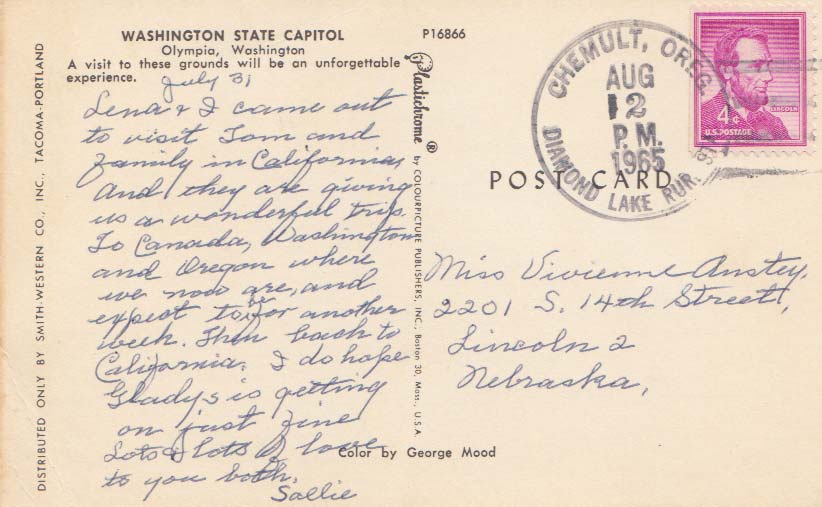 WASHINGTON STATE CAPITOL
Olympia, Washington
A visit to these grounds will be an unforgettable
experience.
P16866
July 31
Lena & I came out
to visit Tom and
family in California,
and they are giving
us a wonderful trip.
To Canada, Washington
and Oregon where
we now are, and
expect to be for another
week. Then back to
California. I do hope
Gladys is getting
on just fine
Lots & lots of love
to you both.
Sallie
DISTRIBUTED ONLY BY SMITH-WESTERN CO., INC., TACOMA-PORTLAND
Plastichrome ® by COLOURPICTURE PUBLISHERS, INC., Boston 30, Mass., U.S.A.
Color by George Mood
POST CARD
CHEMULT, OREG.
AUG
12
P.M.
1965
DIAMOND LAKE RUR.
LINCOLN
4¢
U.S. POSTAGE
Miss Vivienne Anstey,
2201 S. 14th Street,
Lincoln 2
Nebraska,